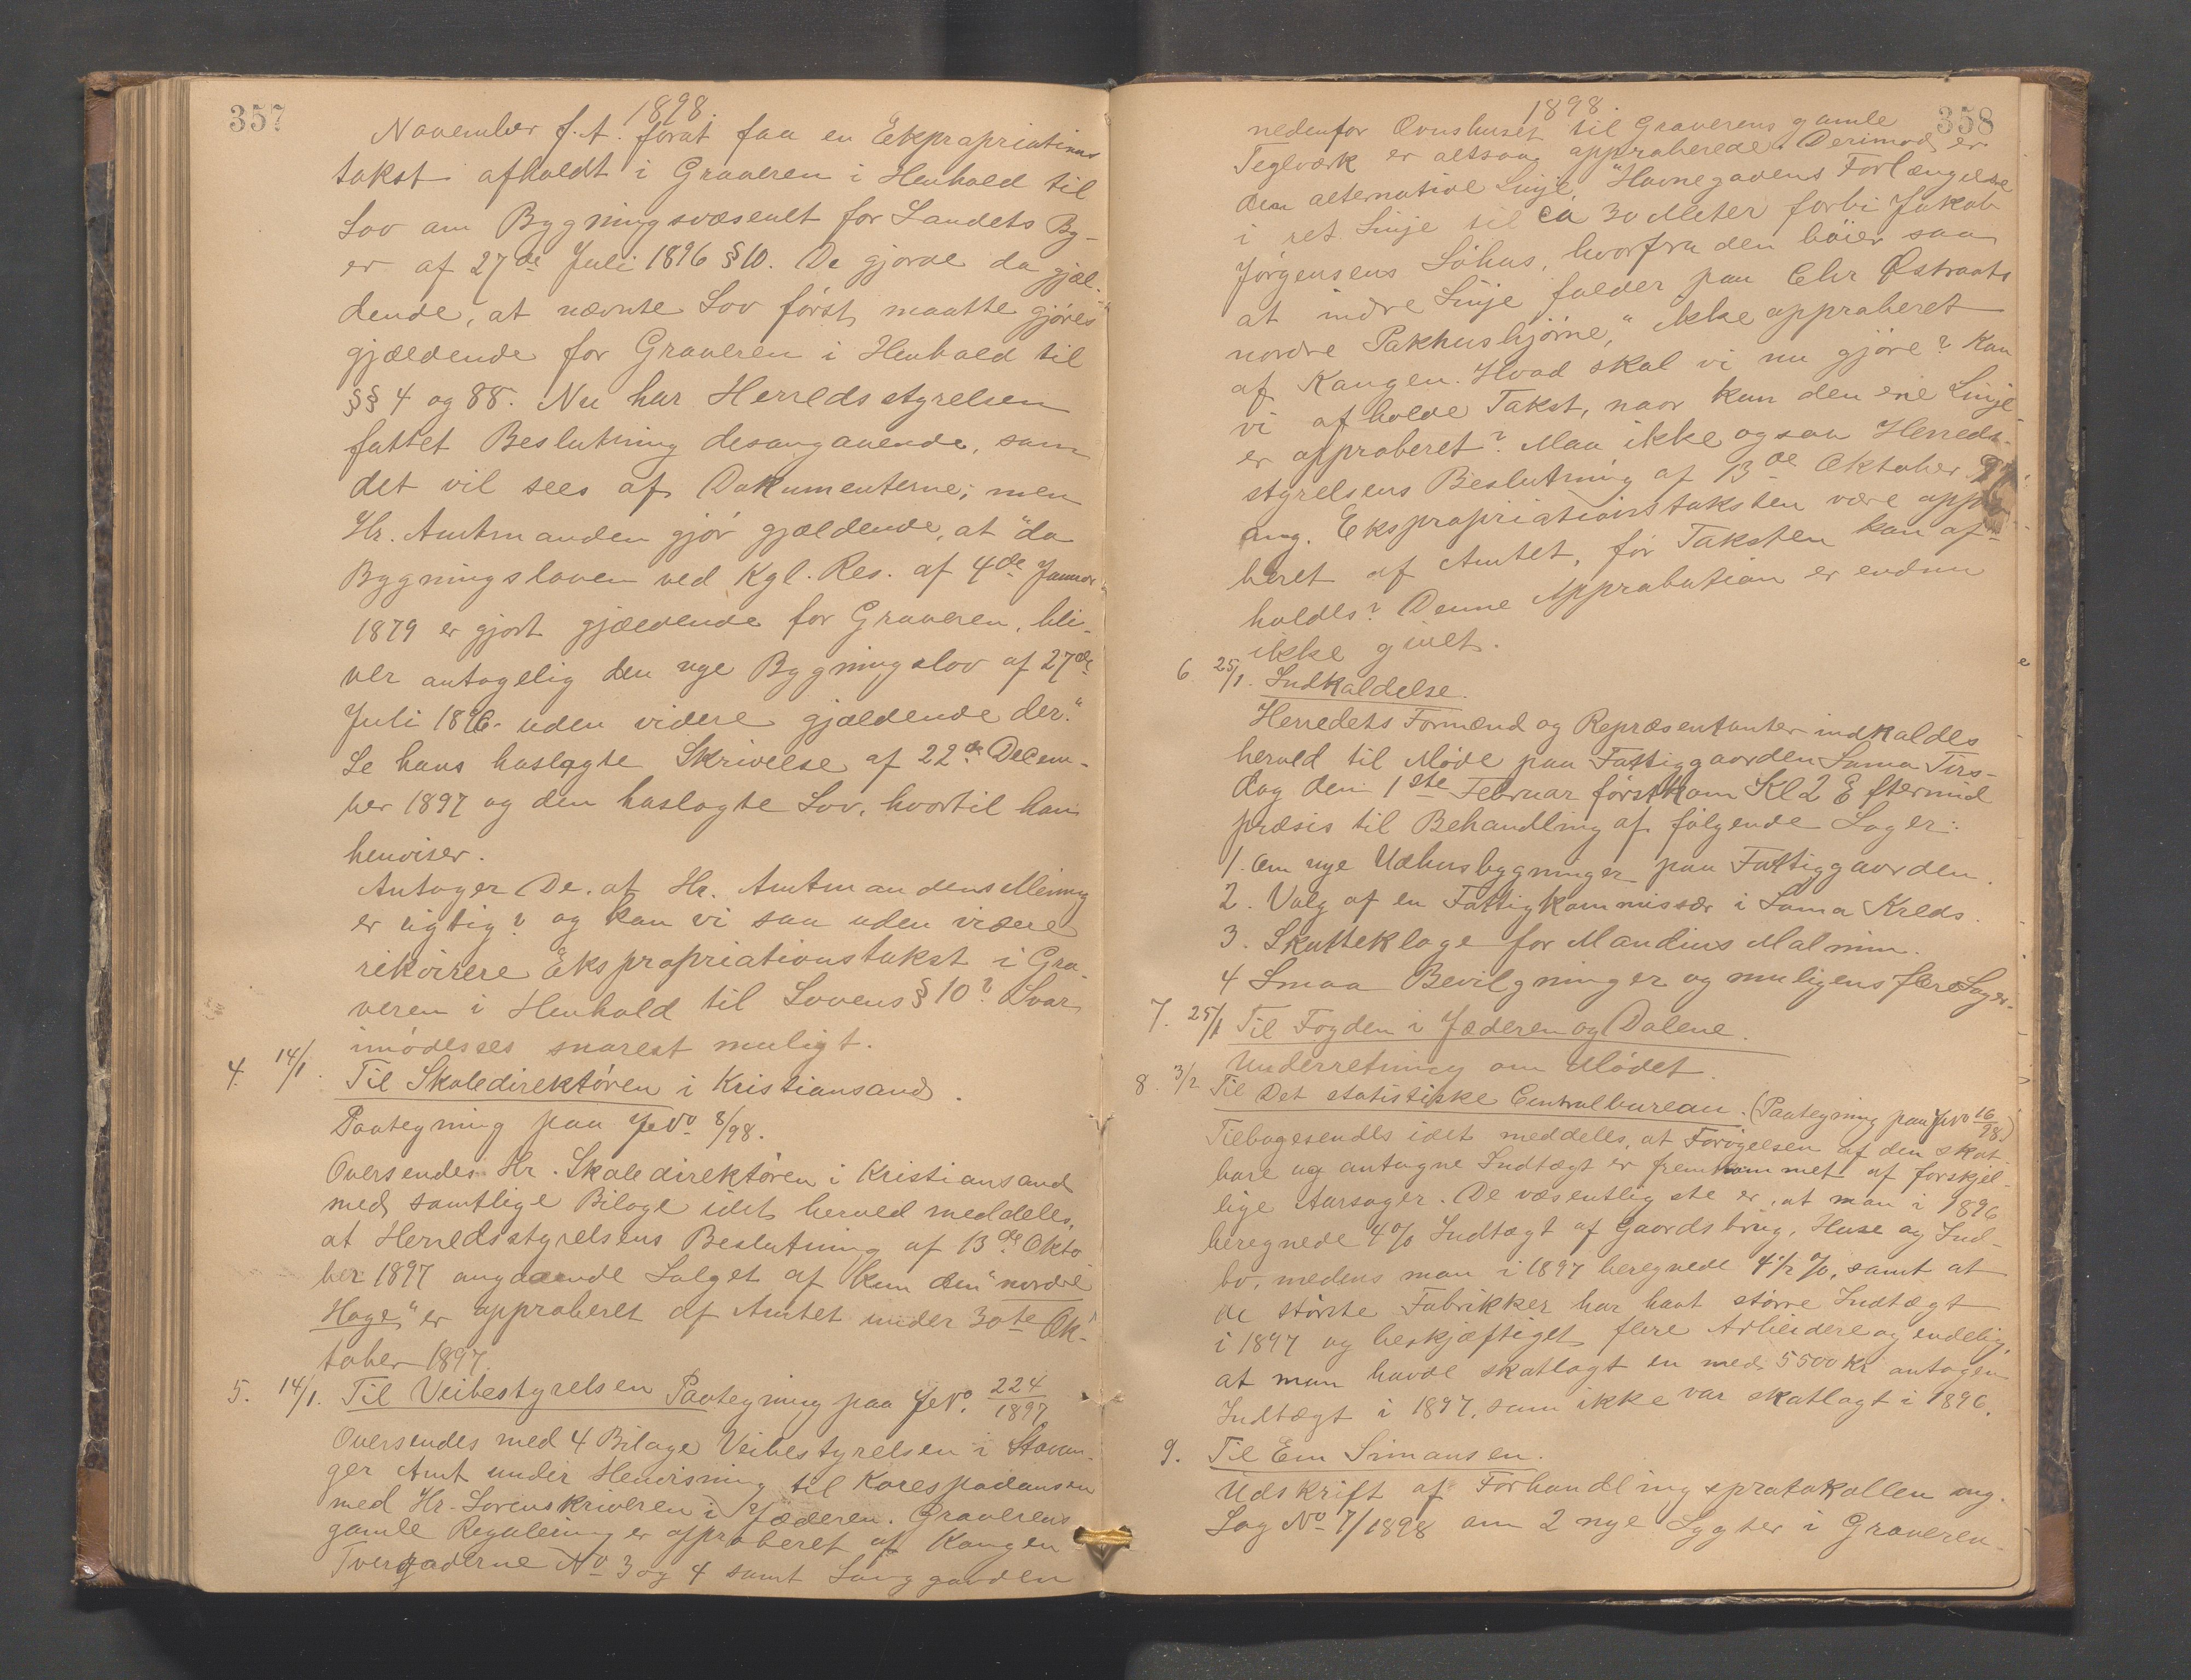 357
1898.
November f. A. forat faa en Ekpropriations
takst afholdt i Graveren i Henhold til
Lov om Bygningsvæsenet for Landets By-
er af 27de Juli 1896 § 10. De gjorde da gjæl-
dende, at nævnte Lov först maatte gjöres
gjældende for Graveren i Henhold til
§§ 4 og 88. Nu har Herredsstyrelsen
fattet Beslutning desangaaende, som
det vil sees af Dokumenterne; men
Hr. Amtmanden gjör gjældende, at "da
Bygningsloven ved Kgl. Res. af 4de Januar
1879 er gjort gjældende for Graveren, bli-
ver antagelig den nye Bygningslov af 27de
Juli 1896 uden videre gjældende der."
Se hans haslagte Skrivelse af 22de Decem-
ber 1897 og den haslagte Lov, hvortil han
henviser.
Antager De, at Hr. Amtmandens Mening
er rigtig? og kan vi saa uden videre
rekvirere Ekspropriationstakst i Gra-
veren i Henhold til Lovens § 10? Svar
imödesees snarest muligt.
4. 14/1. Til Skoledirektören i Kristiansand.
Paategning paa JNo 8/98.
Oversendes Hr. Skoledirektören i Kristiansand
med samtlige Bilage idet herved meddeles,
at Herredsstyrelsens Beslutning af 13de Okto
ber 1897 angaaende Salget af kun den "nordre
Hage" er approberet af Amtet under 30te Ok-
tober 1897.
5. 14/1. Til Veibestyrelsen Paategning paa JNo. 224/1897
Oversendes med 4 Bilage Veibestyrelsen i Stavan-
ger Amt under Henvisning til Korespodansen
med Hr. Sorenskriveren i Jæderen. Graverens
gamle Regulering er approberet af Kongen
Tvergaderne No 3 og 4 samt Langgaden
358
1898.
nedenfor Ovnshuset til Graverens gamle
Teglværk er altsaa approberede. Derimod er
den alternative Linje, "Havnegadens Forlængelse
i ret Linje til ca 30 Meter forbi Jakob
Jörgensens Söhus, hvorfra den böier saa
at indre Linje falder paa Chr Østraats
nordre Pakhushjörne," ikke approberet
af Kongen. Hvad skal vi nu gjöre? Kan
vi afholde Takst, naar kun den ene Linje
er approberet? Maa ikke ogsaa Herreds-
styrelsens Beslutning af 13de Oktober 97
ang. Ekspropriationstaksten være appro-
beret af Amtet, för Taksten kan af-
holdes? Denne Approbation er endnu
ikke givet.
6. 25/1. Indkaldelse.
Herredets Formænd og Repræsentanter indkaldes
herved til Möde paa Fattiggaarden Soma Tirs-
dag den 1ste Februar förstkom Kl 2 Eftermid
præsis til Behandling af fölgende Sager:
1. Om nye Udhusbygninger paa Fattiggaarden.
2. Valg af en Fattigkommissær i Soma Kreds.
3. Skatteklage for Mandius Malmin.
4 Smaa Bevilgninger og muligens flere Sager.
7. 25/1 Til Fogden i Jæderen og Dalene.
Underretning om Mödet.
8. 3/2 Til Det statistiske Centralbureau. (Paategning paa JNo 16/98)
Tilbagesendes idet meddeles, at Forögelsen af den skat-
bare og antagne Indtægt er fremkommet af forskjel-
lige Aarsager. De væsentligste er, at man i 1896
beregnede 4% Indtægt af Gaardsbrug, Huse og Ind-
bo, medens man i 1897 beregnede 4 1/2 %, samt at
de störste Fabrikker har havt större Indtægt
i 1897 og beskjæftiget flere Arbeidere og endelig,
at man havde skatlagt en med 5500 Kr antagen
Indtægt i 1897, som ikke var skatlagt i 1896.
9. Til Em Simonsen.
Udskrift af Forhandlingsprotokollen ang.
Sag No 7/1898 om 2 nye Lygter i Graveren.